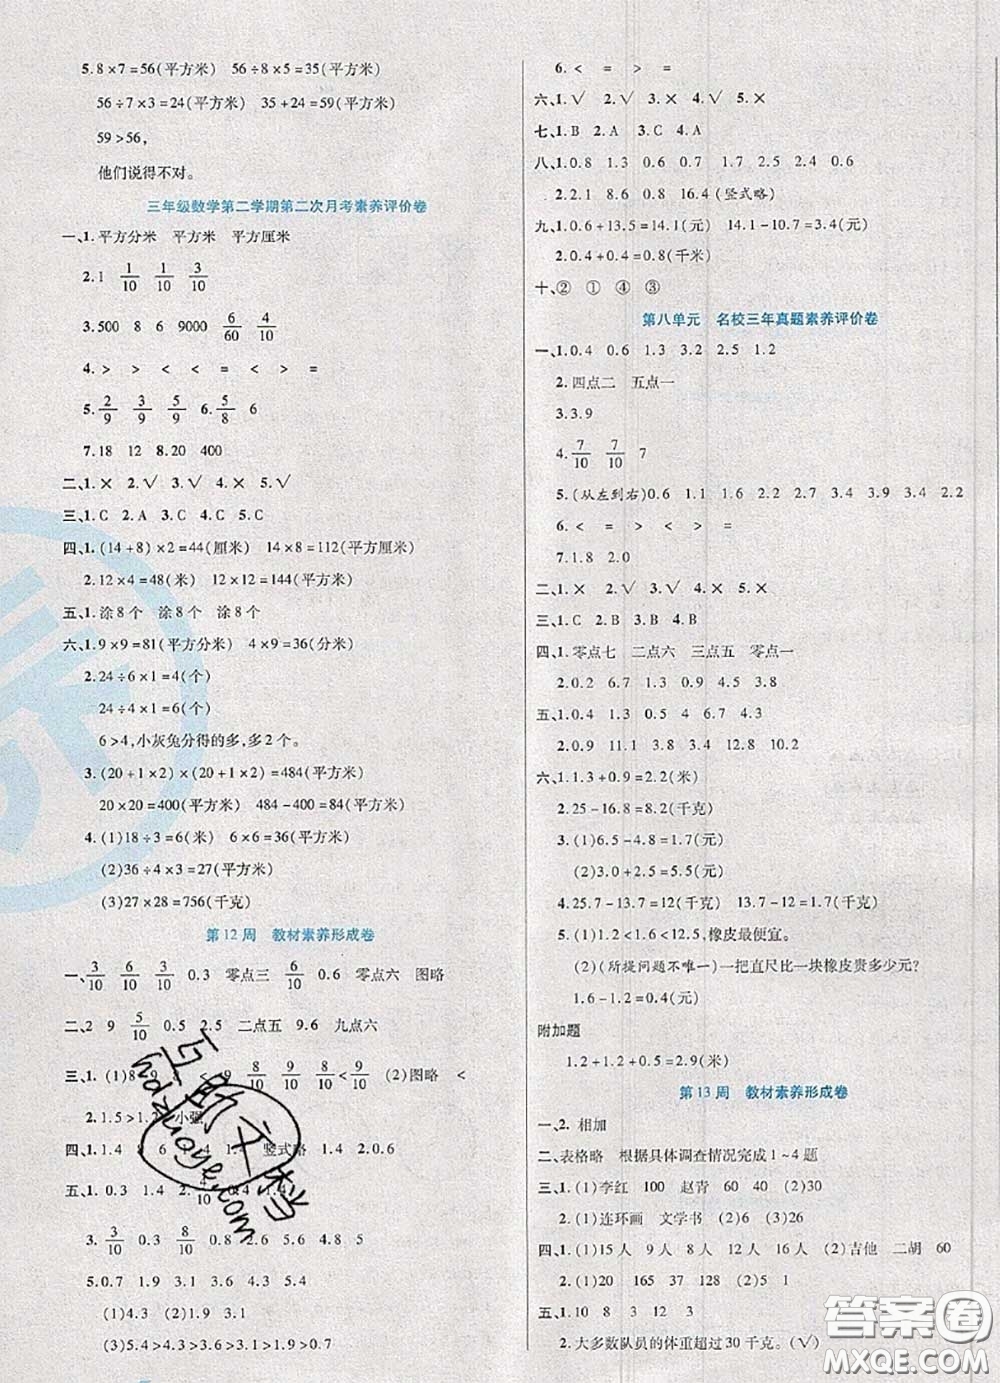 5.8×7=56(平方米) 56÷8×5=35(平方米)
56÷7×3=24(平方米) 35+24=59(平方米)
59>56,
他们说得不对。
三年级数学第二学期第二次月考素养评价卷
一、1.平方分米 平方米 平方厘米
2.1 1/10 1/10 3/10
3.500 8 6 9000 6/60 4/10
4.> < = < < > = >
5.2/9 3/9 5/9 6.5/8 6
7.18 12 8.20 400
二、1.× 2.√ 3.√ 4.× 5.√
三、1.C 2.A 3.C 4.C 5.C
四、1.(14+8)×2=44(厘米) 14×8=112(平方厘米)
2.12×4=48(米) 12×12=144(平方米)
五、1.涂8个 涂8个 涂8个
六、1.9×9=81(平方分米) 4×9=36(分米)
2.24÷6×1=4(个)
24÷4×1=6(个)
6>4,小灰兔分得的多,多2个。
3.(20+1×2)×(20+1×2)=484(平方米)
20×20=400(平方米) 484-400=84(平方米)
4.(1)18÷3=6(米) 6×6=36(平方米)
(2)36÷4×3=27(平方米)
(3)27×28=756(千克)
第12周 教材素养形成卷
一、3/10 3/10 0.3 零点三 6/10 0.6 零点六 图略
二、2 9 5/10 0.5 2.5 二点五 9.6 九点六
三、1.(1)8 9 8/10 9/10 8/10<9/10 (2)图略 <
2.1.5>1.2 小强
四、1.4 竖式略 1.4 2.0.6
五、1. 0.3 1.4 2. 0.6 1.4
3.3/10 0.3 8/10 0.8 2.6 5.8
5.0.7 1.9 4.9 3.1 4.3 5.4
(1)4.3 (2)1.9 (3)4.9 3.1
(4)5.4>4.9>4.3>3.1>1.9>0.7
6. < = > =
六、1.√ 2.√ 3.× 4.× 5.×
七、1.B 2.A 3.C 4.A
八、1.0.8 1.3 0.9 1.5 0.4 0.6
2.2.1 8.6 0.8 16.4(竖式略)
九、1.0.6+13.5=14.1(元) 14.1-10.7=3.4(元)
2.0.4+0.4=0.8(千米)
十、② ① ④ ③
第八单元 名校三年真题素养评价卷
一、1.0.4 0.6 1.3 3.2 2.5 1.2
2.四点二 五点一
3.3.9
4.7/10 7/10 > =
5.(从左到右)0.6 1.8 2.7 3.4 3.9 3.4 2.2
6. < = < > > =
7.1.8 2.0
二、1.× 2.√ 3.√ 4.× 5.×
三、1.C 2.B 3.B 4.B
四、1.零点七 二点六 三点五 零点一
2.0.2 6.7 1.7 4.5 5.2 3.8
五、1.0.4 1.3 0.5 4 6.7 4.3
2.0.9 11.1 7.9 8.4 2.3 1.9
六、1.1.3+0.9=2.2(米)
2.25-16.8=8.2(千克)
3.(1)6.5-4.8=1.7(元)
(2)2.5+3=5.5(元)
4.25.7-13.7=12(千克) 13.7-12=1.7(千克)
5.(1)1.2<1.6<12.5,橡皮最便宜。
(2)(所提问题不唯一)一把直尺比一块橡皮贵多少元?
1.6-1.2=0.4(元)
附加题
1.2+1.2+0.5=2.9(米)
第13周 教材素养形成卷
一、2.相加
二、表格略 根据具体调查情况完成1~4题
三、1.(1)李红 100 赵青 60 40 (2)40
2.(1)连环画 文学书 (2)6 (3)26
四、1.(1)15人 9人 8人 12人 (2)吉他 二胡 60
2.(1)20 165 37 128 (2)略
五、1.10 8 3 12 3
2.大多数队员的体重超过30千克。(√)
互助文档
hdzuoye.com
答案圈
MXQE.COM